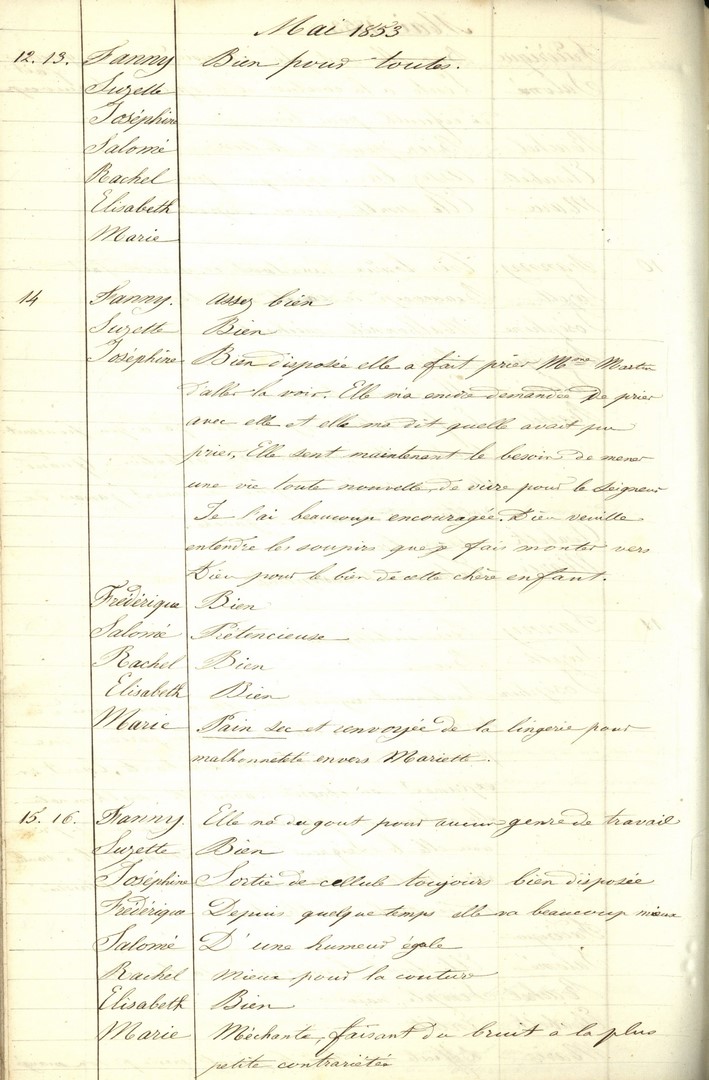 Mai 1853
12. 13. Fanny Bien pour toutes.
Suzette
Joséphine
Salomé
Rachel
Elisabeth
Marie
14 Fanny. assez bien
Suzette Bien
Joséphine Bien disposée elle a fait prier Mme Martin
d'aller la voir. Elle m'a encore demandée de prier
avec elle et elle ma dit quelle avait pu
prier, Elle sent maintenant le besoin de mener
une vie toute nouvelle, de vivre pour le Seigneur
Je l'ai beaucoup encouragée. Dieu veuille
entendre les soupirs que je fais monter vers
Dieu pour le bien de cette chère enfant.
Frédérique Bien
Salomé Prétencieuse
Rachel Bien
Elisabeth Bien
Marie Pain sec et renvoyée de la lingerie pour
malhonnêteté envers Mariette.
15. 16. Fanny. Elle n'a du gout pour aucun genre de travail
Suzette Bien
Joséphine Sortie de cellule toujours bien disposée
Frédérique Depuis quelque temps elle va beaucoup mieux
Salomé D'une humeur égale
Rachel mieux pour la couture
Elisabeth Bien
Marie Méchante, faisant du bruit à la plus
petite contrariétée